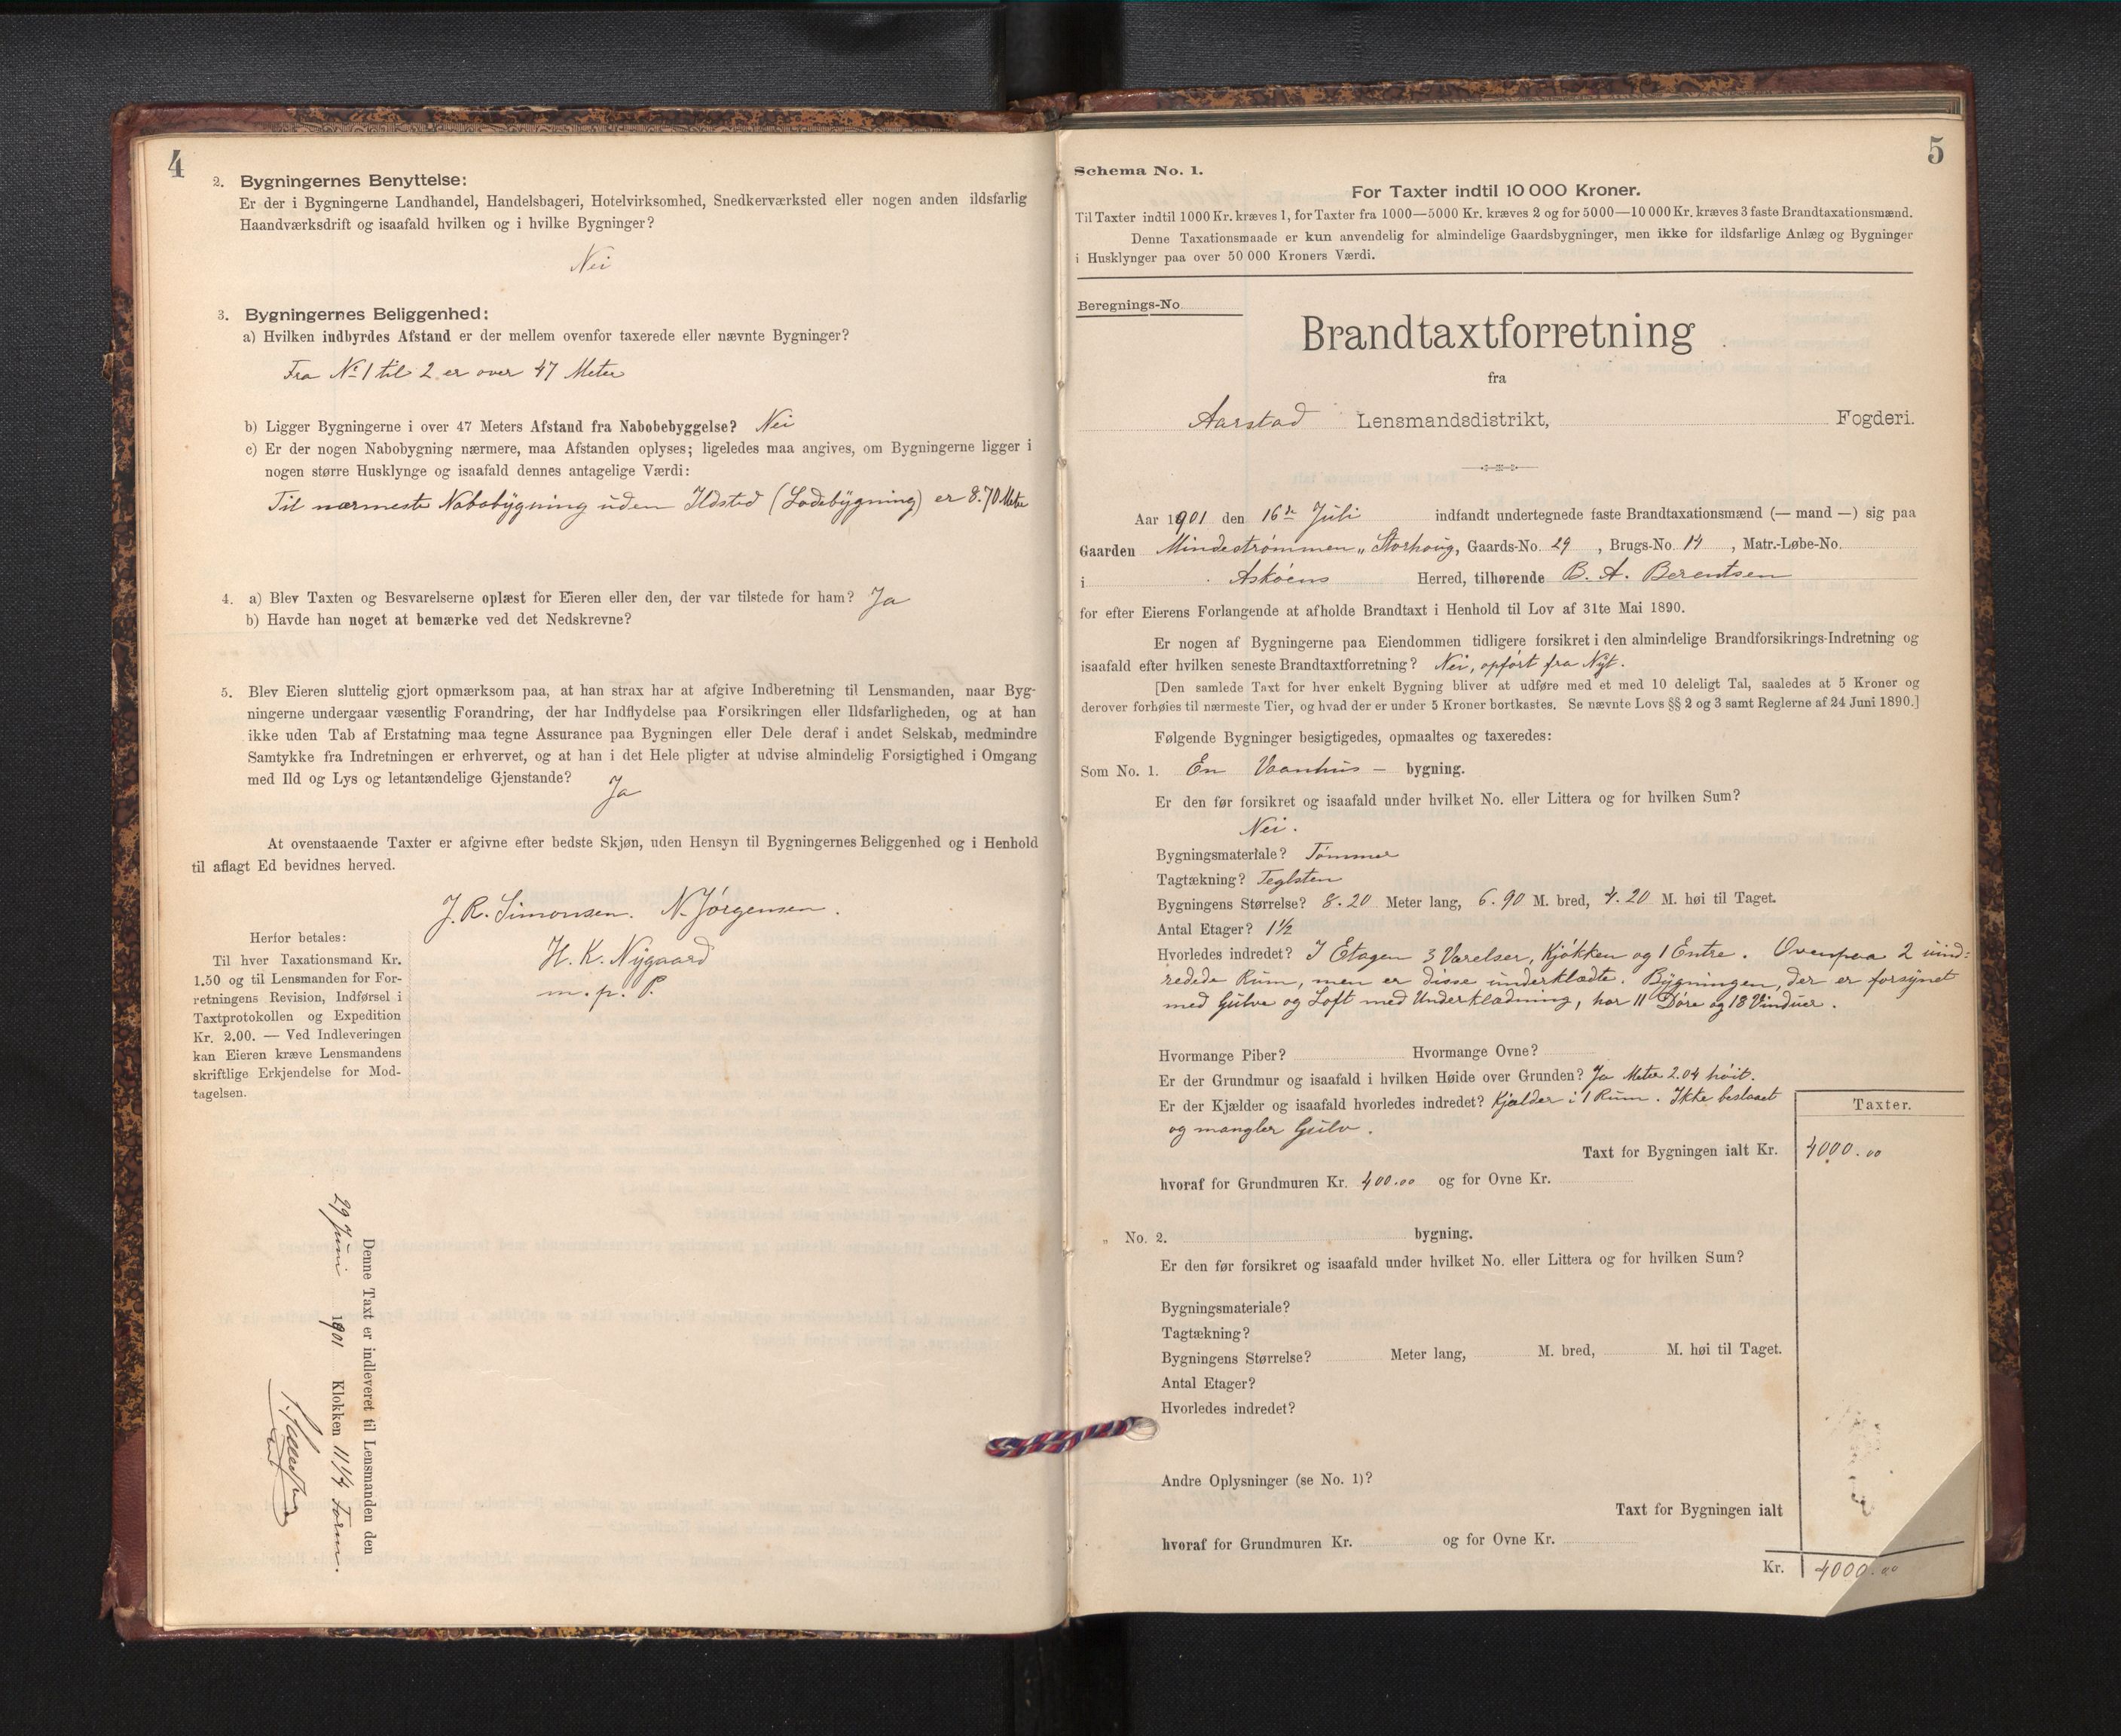 4
2. Bygningernes Benyttelse:
Er der i Bygningerne Landhandel, Handelsbageri, Hotelvirksomhed, Snedkerværksted eller nogen anden ildsfarlig
Haandværksdrift og isaafald hvilken og i hvilke Bygninger?
Nei
3. Bygningernes Beliggenhed:
a) Hvilken indbyrdes Afstand er der mellem ovenfor taxerede eller nævnte Bygninger?
Fra No 1 til 2 er over 47 Meter
b) Ligger Bygningerne i over 47 Meters Afstand fra Nabobebyggelse? Nei
c) Er der nogen Nabobygning nærmere, maa Afstanden oplyses; ligeledes maa angives, om Bygningerne ligger i
nogen større Husklynge og isaafald dennes antagelige Værdi:
Til nærmeste Nabobygning uden Ildsted (Ladebygning) er 8.70 Meter
4. a) Blev Taxten og Besvarelserne oplæst for Eieren eller den, der var tilstede for ham? Ja
b) Havde han noget at bemærke ved det Nedskrevne?
5. Blev Eieren sluttelig gjort opmærksom paa, at han strax har at afgive Indberetning til Lensmanden, naar Byg-
ningerne undergaar væsentlig Forandring, der har Indflydelse paa Forsikringen eller Ildsfarligheden, og at han
ikke uden Tab af Erstatning maa tegne Assurance paa Bygningen eller Dele deraf i andet Selskab, medmindre
Samtykke fra Indretningen er erhvervet, og at han i det Hele pligter at udvise almindelig Forsigtighed i Omgang
med Ild og Lys og letantændelige Gjenstande? Ja
At ovenstaaende Taxter er afgivne efter bedste Skjøn, uden Hensyn til Bygningernes Beliggenhed og i Henhold
til aflagt Ed bevidnes herved.
J. R. Simonsen. N. Jörgensen.
H. K. Nygaard
m. p. P.
Herfor betales:
Til hver Taxationsmand Kr.
1.50 og til Lensmanden for For-
retningens Revision, Indførsel i
Taxtprotokollen og Expedition
Kr. 2.00. — Ved Indleveringen
kan Eieren kræve Lensmandens
skriftlige Erkjendelse for Mod-
tagelsen.
Denne Taxt er indleveret til Lensmanden den
29 Juni 1901 Klokken 11 1/4 Form.
5
Schema No. 1.
For Taxter indtil 10 000 Kroner.
Til Taxter indtil 1000 Kr. kræves 1, for Taxter fra 1000—5000 Kr. kræves 2 og for 5000—10 000 Kr. kræves 3 faste Brandtaxationsmænd.
Denne Taxationsmaade er kun anvendelig for almindelige Gaardsbygninger, men ikke for ildsfarlige Anlæg og Bygninger
i Husklynger paa over 50 000 Kroners Værdi.
Beregnings-No.
Brandtaxtforretning
fra
Aarstad Lensmandsdistrikt, Fogderi.
Aar 1901 den 16de Juli indfandt undertegnede faste Brandtaxationsmænd (— mand —) sig paa
Gaarden Mindeströmmen „Storhoug, Gaards-No. 29, Brugs-No. 14, Matr.-Løbe-No.
i Asköens Herred, tilhørende B. A. Berentsen
for efter Eierens Forlangende at afholde Brandtaxt i Henhold til Lov af 31te Mai 1890.
Er nogen af Bygningerne paa Eiendommen tidligere forsikret i den almindelige Brandforsikrings-Indretning og
isaafald efter hvilken seneste Brandtaxtforretning? Nei, opfört fra Nyt.
[Den samlede Taxt for hver enkelt Bygning bliver at udføre med et med 10 deleligt Tal, saaledes at 5 Kroner og
derover forhøies til nærmeste Tier, og hvad der er under 5 Kroner bortkastes. Se nævnte Lovs §§ 2 og 3 samt Reglerne af 24 Juni 1890.]
Følgende Bygninger besigtigedes, opmaaltes og taxeredes:
Som No. 1. En Vaanhus — bygning.
Er den før forsikret og isaafald under hvilket No. eller Littera og for hvilken Sum?
Nei.
Bygningsmateriale? Tømmer
Tagtækning? Teglsten
Bygningens Størrelse? 8.20 Meter lang, 6.90 M. bred, 4.20 M. høi til Taget.
Antal Etager? 1½
Hvorledes indredet? I Etagen 3 Værelser, Kjökken og 1 Entre. Ovenpaa 2 uind-
redede Rum, men er disse underklædte. Bygningen, der er forsynet
med Gulve og Loft med Underklædning, har 11 Döre og 13 Vinduer.
Hvormange Piber? Hvormange Ovne?
Er der Grundmur og isaafald i hvilken Høide over Grunden? Ja Meter 2.04 höit.
Er der Kjælder og isaafald hvorledes indredet? Kjælder i 1 Rum. Ikke beslaaet
og mangler Gulv.
Taxter.
Taxt for Bygningen ialt Kr. 4000.00
hvoraf for Grundmuren Kr. 400.00 og for Ovne Kr.
„ No. 2. bygning.
Er den før forsikret og isaafald under hvilket No. eller Littera og for hvilken Sum?
Bygningsmateriale?
Tagtækning?
Bygningens Størrelse? Meter lang, M. bred, M. høi til Taget.
Antal Etager?
Hvorledes indredet?
Andre Oplysninger (se No. 1)?
Taxt for Bygningen ialt
hvoraf for Grundmuren Kr. og for Ovne Kr.
Kr. 4000.00